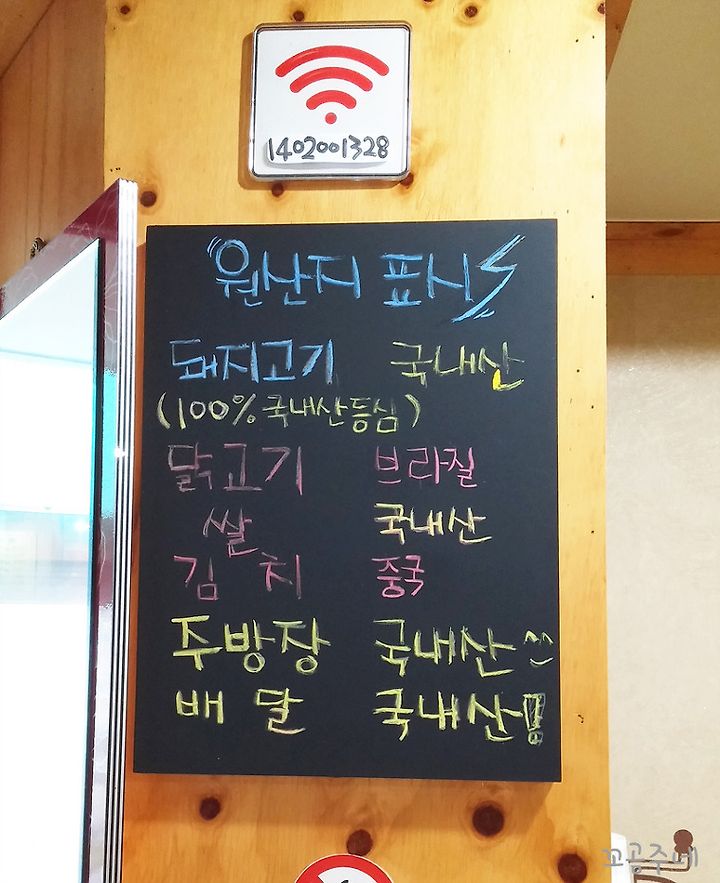 1402001328
원산지 표시
돼지고기 국내산
(100% 국내산등심)
닭고기 브라질
쌀 국내산
김 치 중국
주방장 국내산^^
배 달 국내산!!
꼬곰주네